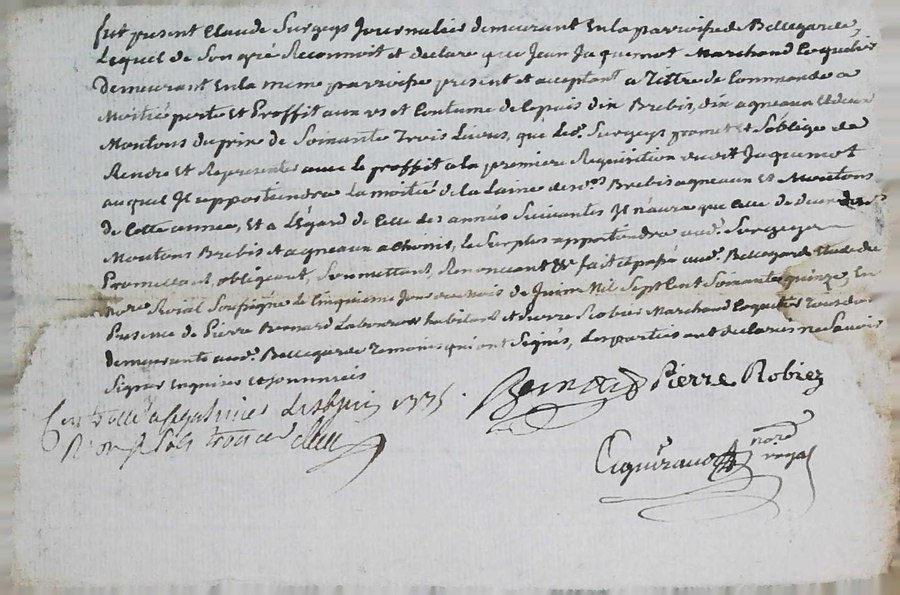 fut present Claude Surgeys Journalier demeurant En la parroisse de Bellegarde
Lequel de Son gré Reconnoit et declare que Jean Jaquemot Marchand Coquetier
Demeurant En la meme parroisse present et acceptant a Tittre de Commande a
Moitié perte et Proffit aux us et Coutume de Ce pais dix Brebis, dix agneaux et deux
Moutons du prix de Soixante Trois Livres, que led. Surgeys promet et S'oblige de
Rendre et Representer avec Le proffit a la premiere Requisition dudit Jaquemot
auquel Il appartiendra La moitié de la Laine desd. Brebis agneaux et Moutons
de Cette année, Et a L'Egard de Celle des années Suivantes Il n'aura que Celle de deux
Moutons Brebis et agneaux a Choisir, Le Surplus appartiendra aud. Surgeys
Promettant, obligeant, Soumettant, Renonceant &c fait et passé aud. Bellegarde Etude du
no.re Roial Soussigné Le Cinquieme Jour du mois de Juin Mil Sept Cent Soixante quinze, En
Presence de Pierre Bernard Laboureur habitant et Pierre Robier Marchand Coquetier Tous deux
demeurants aud. Bellegarde Temoins qui ont Signés, Les parties ont declarées ne Savoir
Signer Enquises et Sommées
Bernard Pierre Robiez
Controllé a juin 1775.
no.re
royal